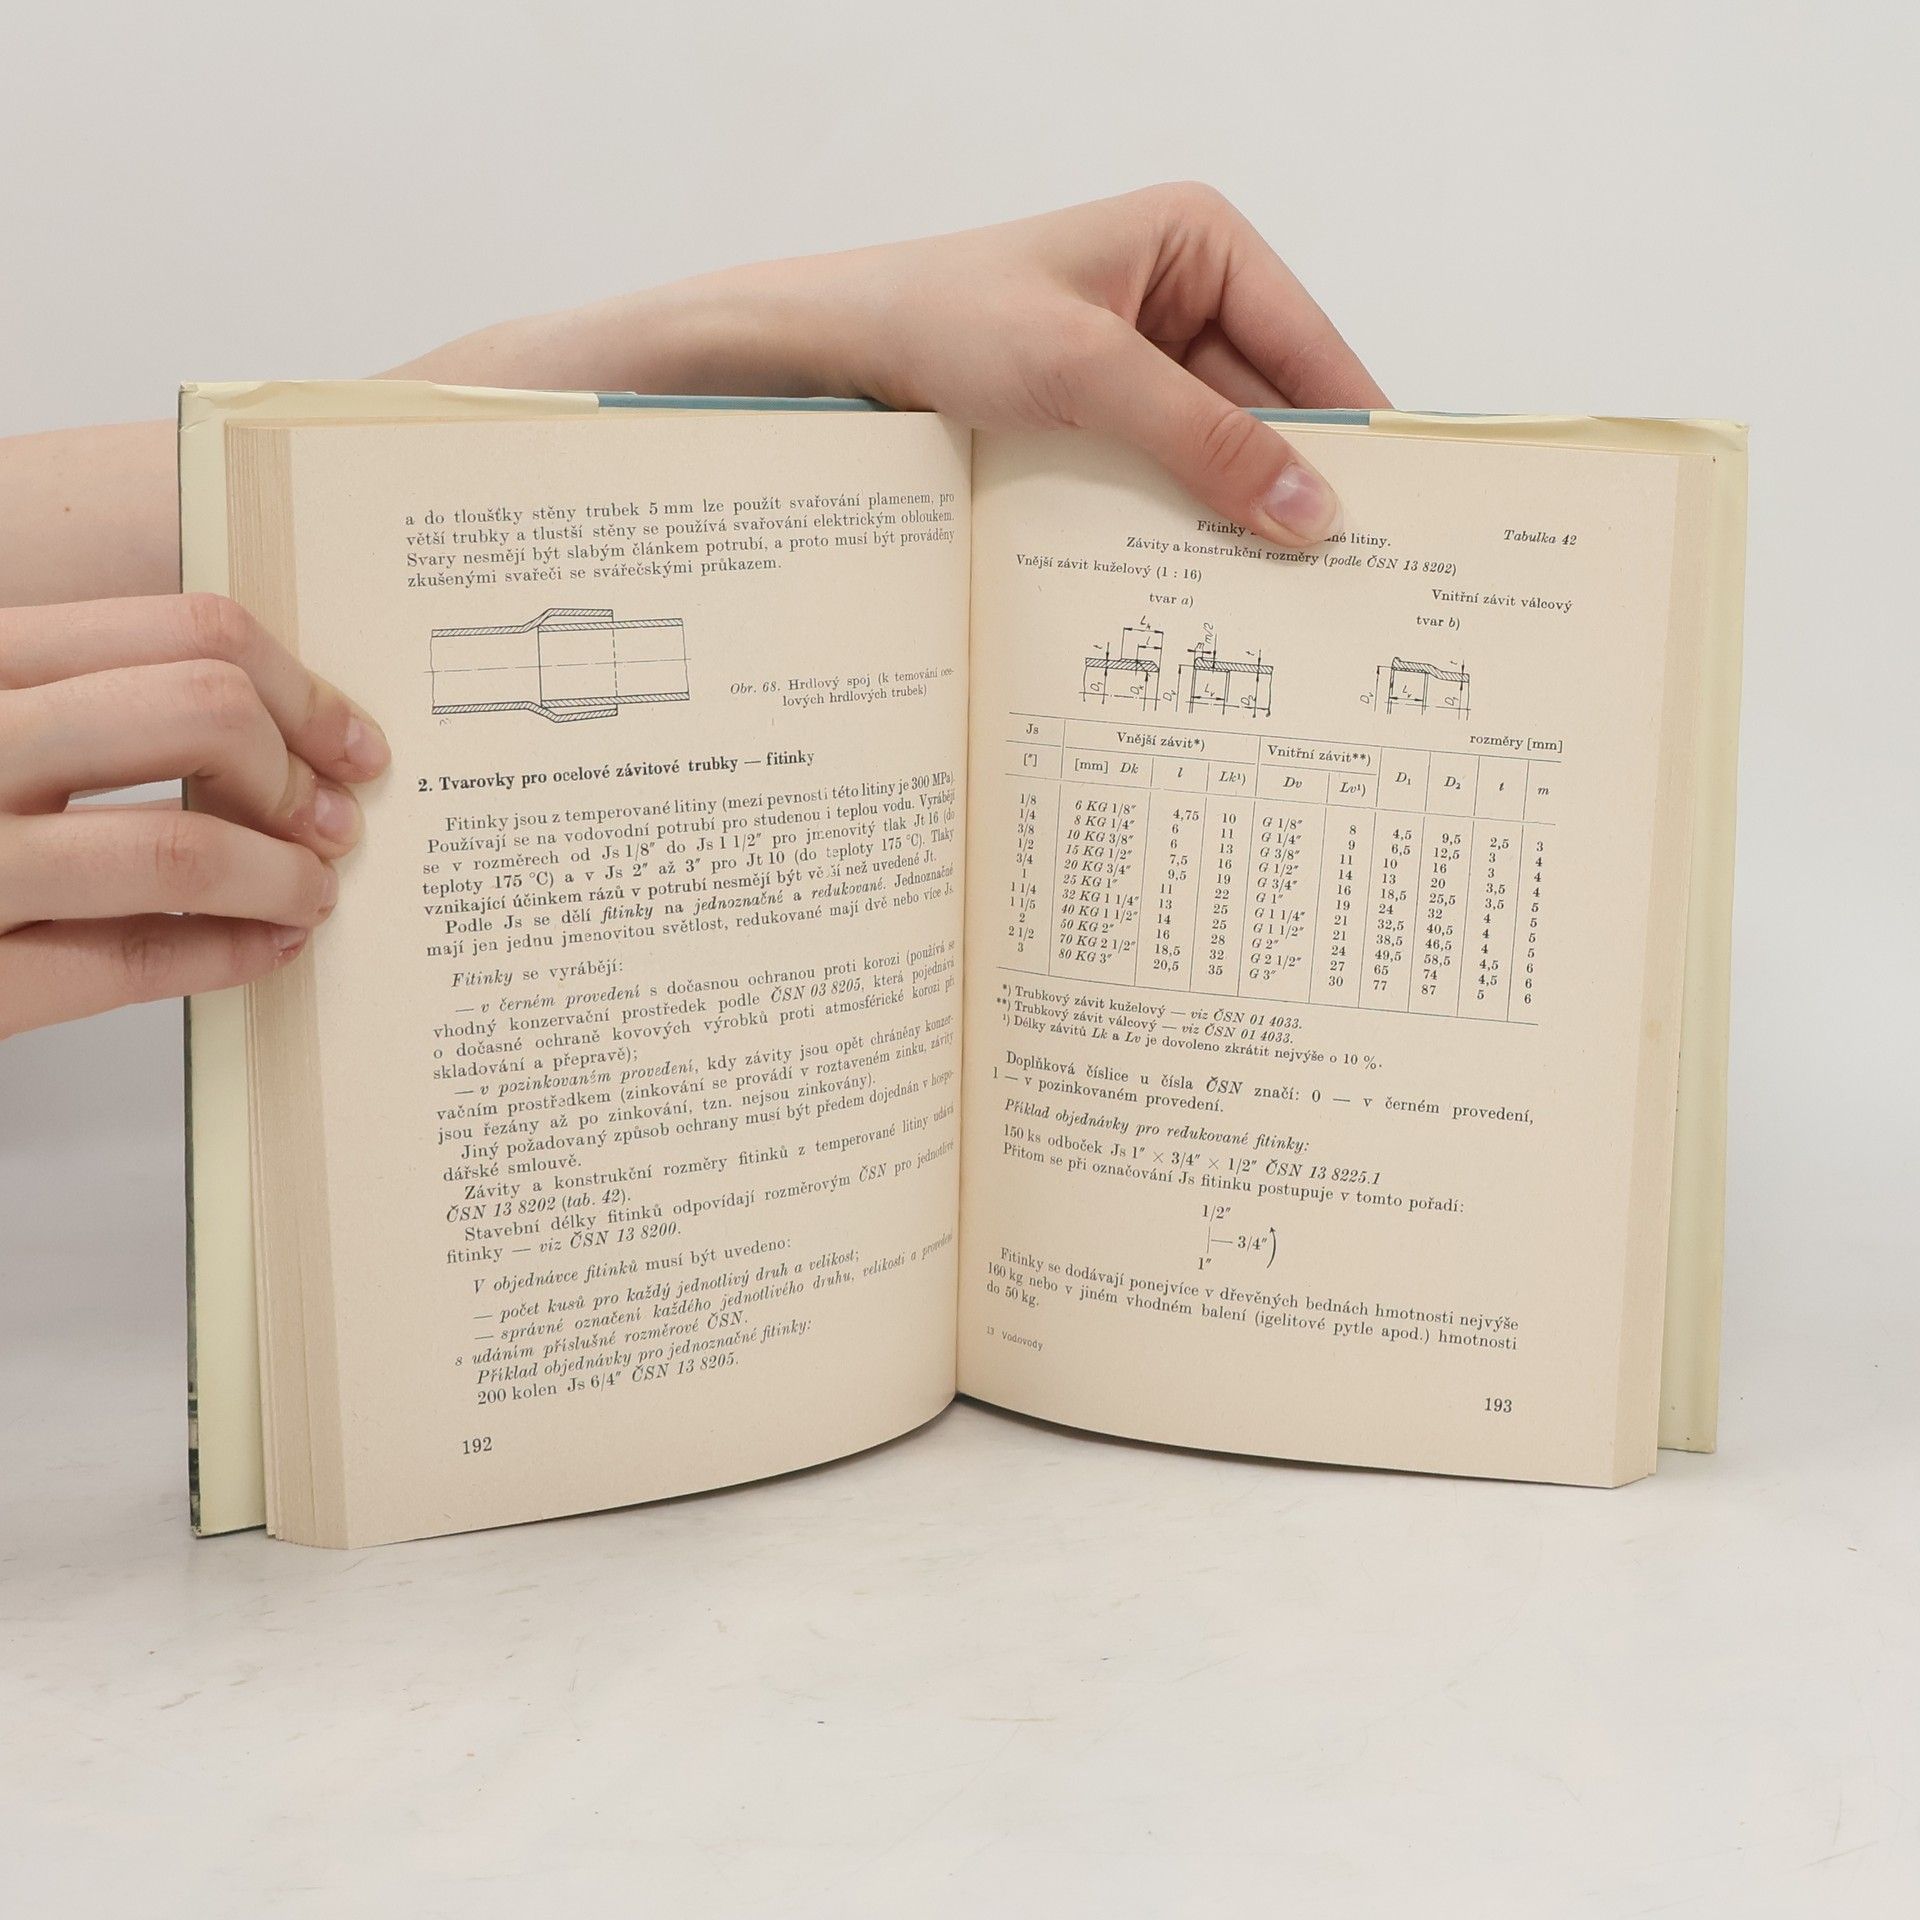 a do tloušťky stěny trubek 5 mm lze použít svařování plamenem, pro
větší trubky a tlustší stěny se používá svařování elektrickým obloukem.
Svary nesmějí být slabým článkem potrubí, a proto musí být prováděny
zkušenými svařeči se svářečskými průkazem.
Obr. 68. Hrdlový spoj (k temování oce-
lových hrdlových trubek)
2. Tvarovky pro ocelové závitové trubky — fitinky
Fitinky jsou z temperované litiny (mezí pevnosti této litiny je 300 MPa).
Používají se na vodovodní potrubí pro studenou i teplou vodu. Vyrábějí
se v rozměrech od Js 1/8″ do Js 1 1/2″ pro jmenovitý tlak Jt 16 (do
teploty 175 °C) a v Js 2″ až 3″ pro Jt 10 (do teploty 175 °C). Tlaky
vznikající účinkem rázů v potrubí nesmějí být větší než uvedené Jt.
Podle Js se dělí fitinky na jednoznačné a redukované. Jednoznačné
mají jen jednu jmenovitou světlost, redukované mají dvě nebo více Js.
Fitinky se vyrábějí:
— v černém provedení s dočasnou ochranou proti korozi (používá se
vhodný konzervační prostředek podle ČSN 03 8205, která pojednává
o dočasné ochraně kovových výrobků proti atmosférické korozi při
skladování a přepravě);
— v pozinkovaném provedení, kdy závity jsou opět chráněny konzer-
vačním prostředkem (zinkování se provádí v roztaveném zinku, závity
jsou řezány až po zinkování, tzn. nejsou zinkovány).
Jiný požadovaný způsob ochrany musí být předem dojednán v hospo-
dářské smlouvě.
Závity a konstrukční rozměry fitinků z temperované litiny udává
ČSN 13 8202 (tab. 42).
Stavební délky fitinků odpovídají rozměrovým ČSN pro jednotlivé
fitinky — viz ČSN 13 8200.
V objednávce fitinků musí být uvedeno:
— počet kusů pro každý jednotlivý druh a velikost;
— správné označení každého jednotlivého druhu, velikosti a provedení
s udáním příslušné rozměrové ČSN.
Příklad objednávky pro jednoznačné fitinky:
200 kolen Js 6/4″ ČSN 13 8205.
192
Tabulka 42
Fitinky litiny.
Závity a konstrukční rozměry (podle ČSN 13 8202)
Vnější závit kuželový (1 : 16)
Vnitřní závit válcový
tvar a)
tvar b)
rozměry [mm]
Js Vnější závit*) Vnitřní závit**) D₁ D₂ t m
[″] [mm] Dk l Lk¹) Dv Lv¹)
1/8 6 KG 1/8″ 4,75 10 G 1/8″ 8 4,5 9,5 2,5 3
1/4 8 KG 1/4″ 6 11 G 1/4″ 9 6,5 12,5 3 4
3/8 10 KG 3/8″ 6 13 G 3/8″ 11 10 16 3 4
1/2 15 KG 1/2″ 7,5 16 G 1/2″ 14 13 20 3,5 4
3/4 20 KG 3/4″ 9,5 19 G 3/4″ 16 18,5 25,5 3,5 5
1 25 KG 1″ 11 22 G 1″ 19 24 32 4 5
1 1/4 32 KG 1 1/4″ 13 25 G 1 1/4″ 21 32,5 40,5 4 5
1 1/5 40 KG 1 1/2″ 14 25 G 1 1/2″ 21 38,5 46,5 4 5
2 50 KG 2″ 16 28 G 2″ 24 49,5 58,5 4,5 6
2 1/2 70 KG 2 1/2″ 18,5 32 G 2 1/2″ 27 65 74 4,5 6
3 80 KG 3″ 20,5 35 G 3″ 30 77 87 5 6
*) Trubkový závit kuželový — viz ČSN 01 4033.
**) Trubkový závit válcový — viz ČSN 01 4033.
¹) Délky závitů Lk a Lv je dovoleno zkrátit nejvýše o 10 %.
Doplňková číslice u čísla ČSN značí: 0 — v černém provedení,
1 — v pozinkovaném provedení.
Příklad objednávky pro redukované fitinky:
150 ks odboček Js 1″ × 3/4″ × 1/2″ ČSN 13 8225.1
Přitom se při označování Js fitinku postupuje v tomto pořadí:
1/2″
3/4″
1″
Fitinky se dodávají ponejvíce v dřevěných bednách hmotnosti nejvýše
160 kg nebo v jiném vhodném balení (igelitové pytle apod.) hmotnosti
do 50 kg.
13 Vodovody
193